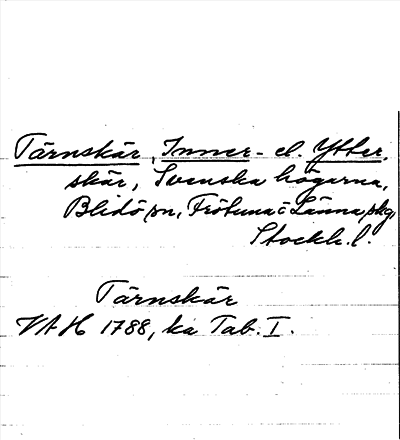 Tärnskär, Inner- el. Ytter,
skär, Svenska högarna,
Blidö sn, Frötuna o Länna skg,
Stockh. l.
Tärnskär
VAH 1788, ka Tab. I.